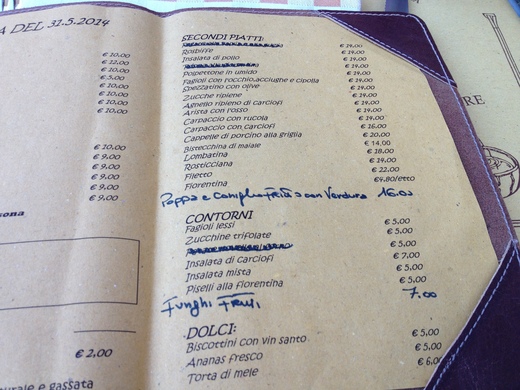 A DEL 31.5.2014
€ 10,00
€ 12,00
€ 10,00
€ 10,00
€ 10,00
€ 10,00
€ 10,00
€ 9,00
€ 9,00
€ 9,00
€ 9,00
sona
€ 2,00
urale e gassata
SECONDI PIATTI:
€ 14,00
Rosbiffe € 14,00
Insalata di pollo € 14,00
€ 14,00
Polpettone in umido € 14,00
Fagioli con rocchio,acciughe e cipolla € 14,00
Spezzatino con olive € 14,00
Zucchine ripiene € 14,00
Agnello ripieno di carciofi € 14,00
Arista con rosso € 14,00
Carpaccio con rucola € 14,00
Carpaccio con carciofi € 16,00
Cappelle di porcino alla griglia € 20,00
Bistecchina di maiale € 14,00
Lombatina € 18,00
Rosticciana € 14,00
Filetto € 22,00
Fiorentina €4,80/etto
e Coniglio con Verdura 16.00
CONTORNI
Fagioli lessi € 5,00
Zucchine trifolate € 5,00
€ 5,00
Insalata di carciofi € 7,00
Insalata mista € 5,00
Piselli alla fiorentina € 5,00
Funghi Fritti 7.00
DOLCI:
Biscottini con vin santo € 5,00
Ananas fresco € 5,00
Torta di mele € 6,00
RE